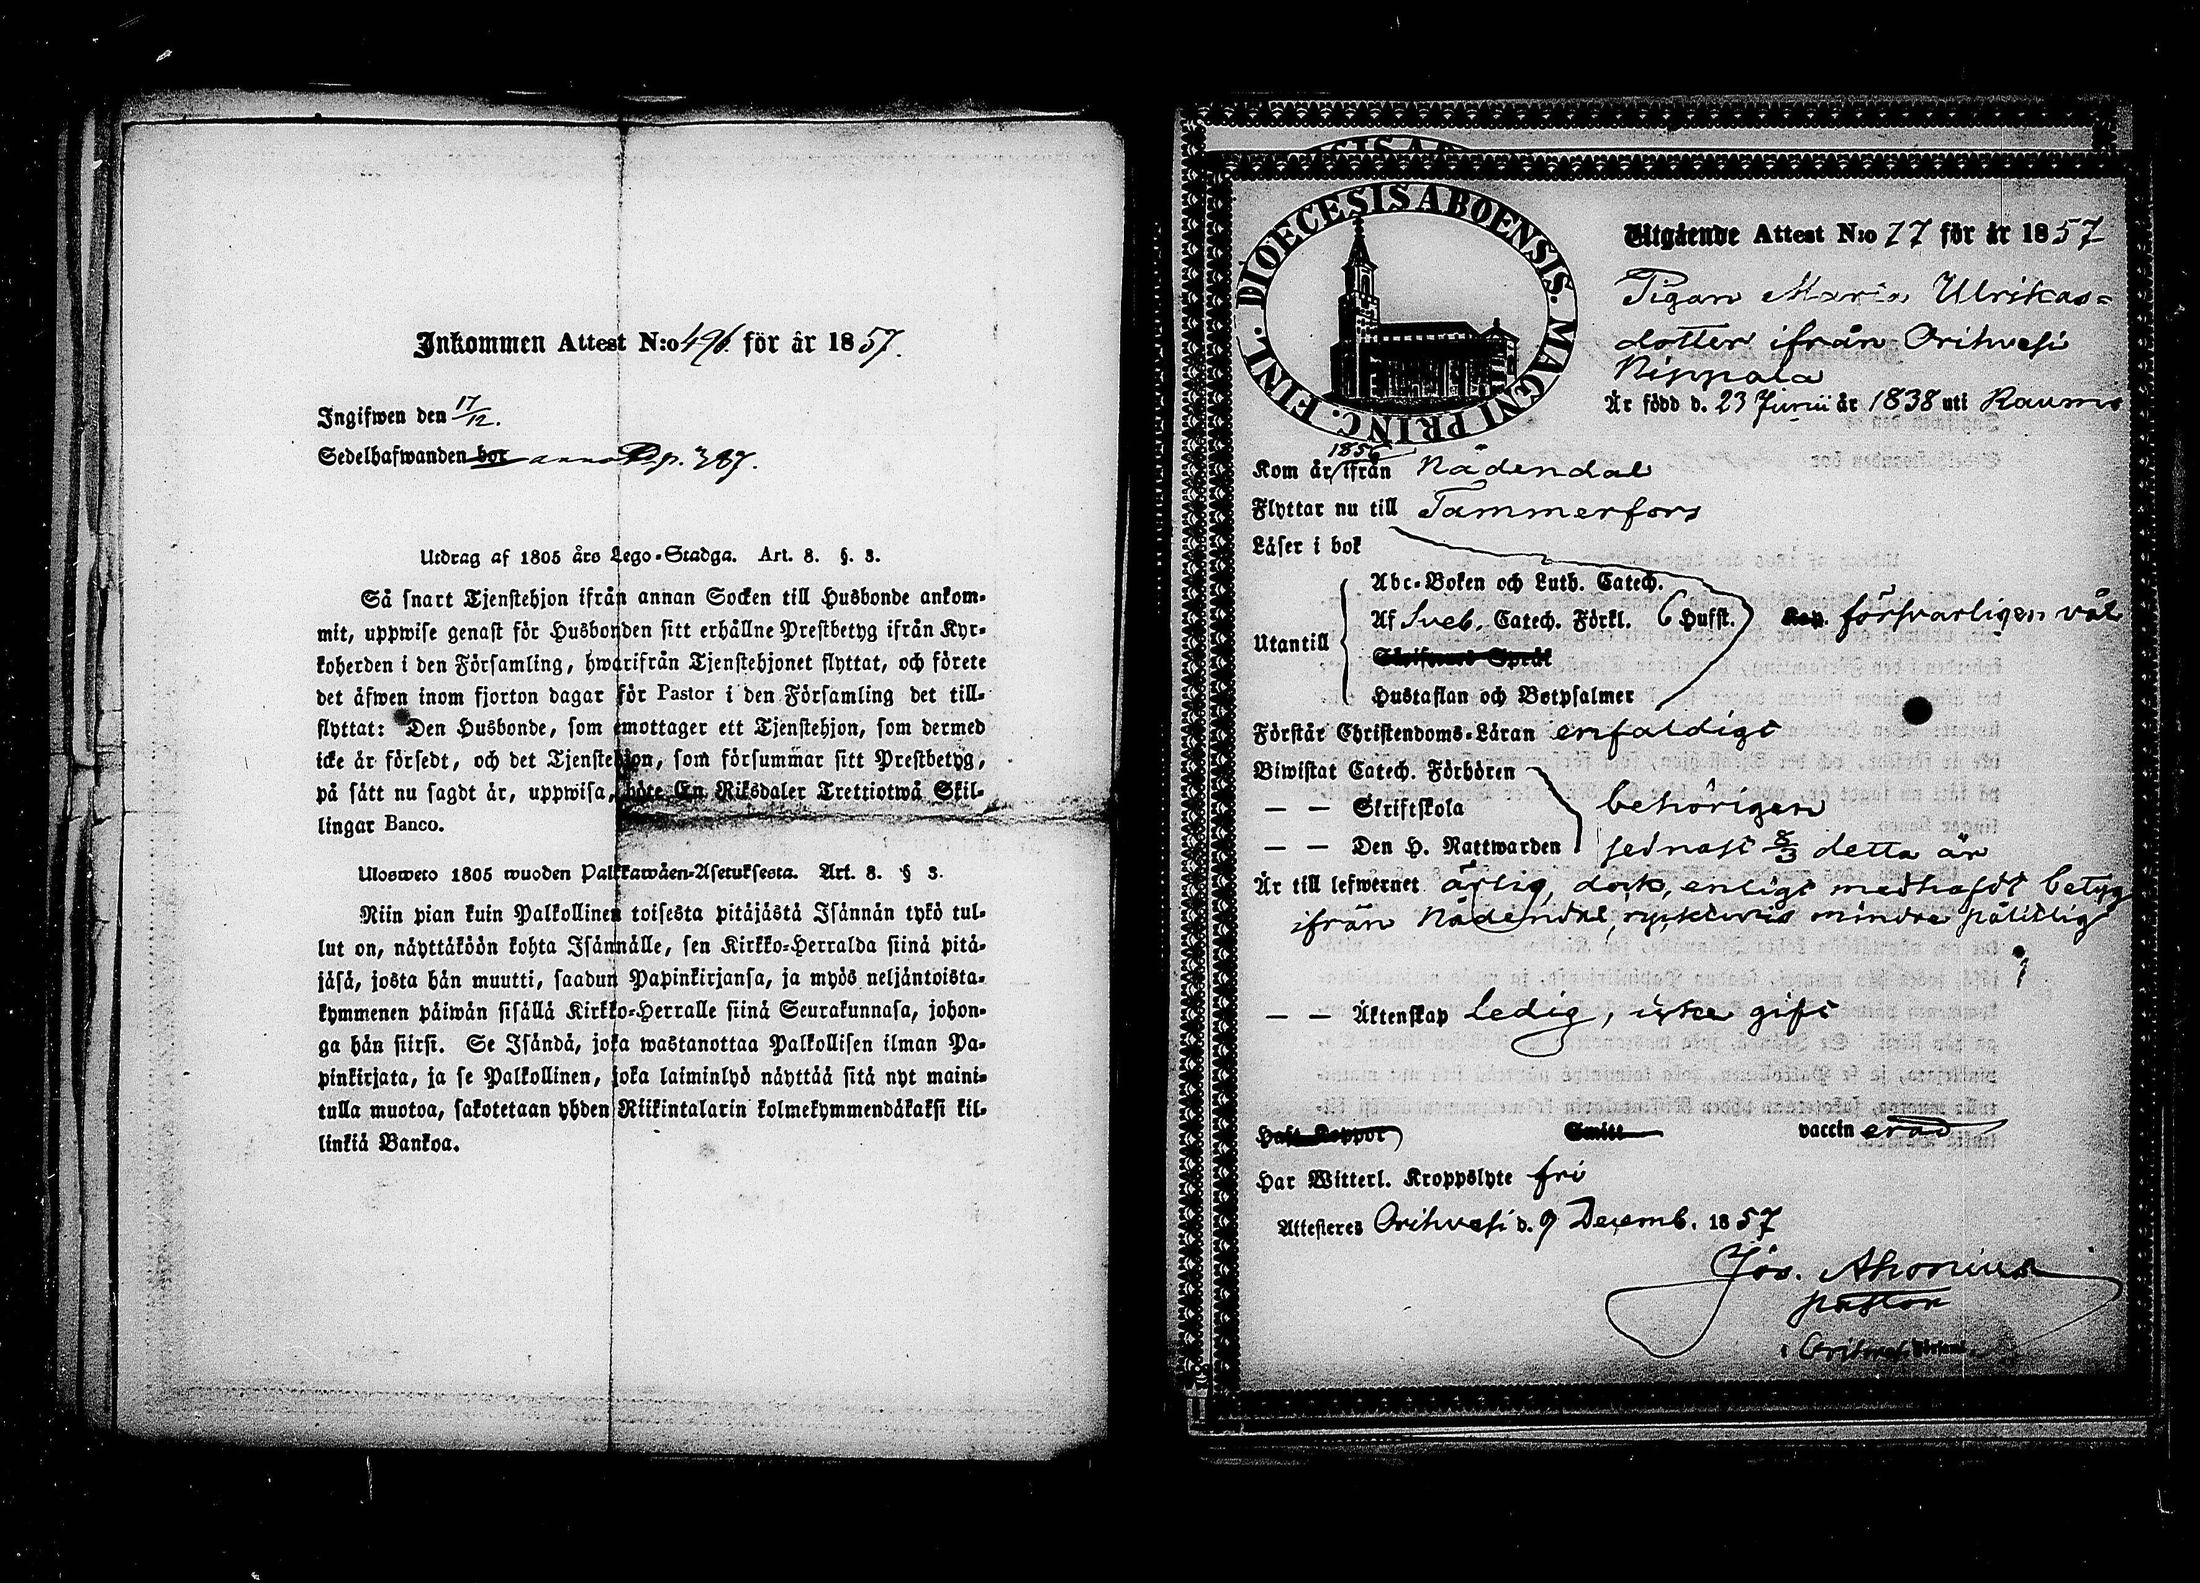 Inkommen Attest N:o 496. för år 1857.
Ingifwen den 17/12.
Sedelhafwanden bor anno p. 387.
Utdrag af 1805 års Lego-Stadga. Art. 8. §. 3.
Så snart Tjenstehjon ifrån annan Socken till Husbonde ankom-
mit, uppwise genast för Husbonden sitt erhållne Prestbetyg ifrån Kyr-
koherden i den Församling, hwarifrån Tjenstehjonet flyttat, och förete
det äfwen inom fjorton dagar för Pastor i den Församling det till-
flyttat: Den Husbonde, som emottager ett Tjenstehjon, som dermed
icke är försedt, och det Tjenstehjon, som försummar sitt Prestbetyg,
på sätt nu sagdt är, uppwisa, böte En Riksdaler Trettiotwå Skil-
lingar Banco.
Ulosweto 1805 wuoden Palkkawäen-Asetuksesta. Art. 8. § 3.
Niin pian kuin Palkollinen toisesta pitäjästä Isännän tykö tul-
lut on, näyttäköön kohta Isännälle, sen Kirkko-Herralda siinä pitä-
jäsä, josta hän muutti, saadun Papinkirjansa, ja myös neljäntoista-
kymmenen päiwän sisällä Kirkko-Herralle siinä Seurakunnasa, johon-
ga hän siirsi. Se Isändä, joka wastanottaa Palkollisen ilman Pa-
pinkirjata, ja se Palkollinen, joka laiminlyö näyttää sitä nyt maini-
tulla muotoa, sakotetaan yhden Riikintalarin kolmekymmendäkaksi kil-
linkiä Bankoa.
DIOECESIS ABOENSIS. MAGNI PRINC. FINL.
Utgående Attest N:o 77 för år 1857
Pigan Maria Ulrikas-
dotter ifrån Orihvesi
Är född d. 23 Junii år 1838 uti Raumo
Kom år 1856 ifrån Nådendal
Flyttar nu till Tammerfors
Läser i bok
Abc-Boken och Luth. Catech.
Utantill Af Sveb. Catech. Förkl. 6 Hufst. försvarligen väl
Skriftenes Språk
Hustaflan och Botpsalmer
Förstår Christendoms-Läran enfaldigt
Biwistat Catech. Förhören
— — Skriftskola behörigen
— — Den H. Nattwarden sednast 8/3 detta år
Är till lefwernet ärlig, dock, enligt medhafdt betyg
ifrån Nådendal, ryktewis mindre pålitlig
— — Äktenskap Ledig, icke gift
Haft Koppor Smitt vaccinerad
Har Witterl. Kroppslyte fri
Attesteres Orihvesi d. 9 Decemb. 1857
Jos. Ahonius
pastor